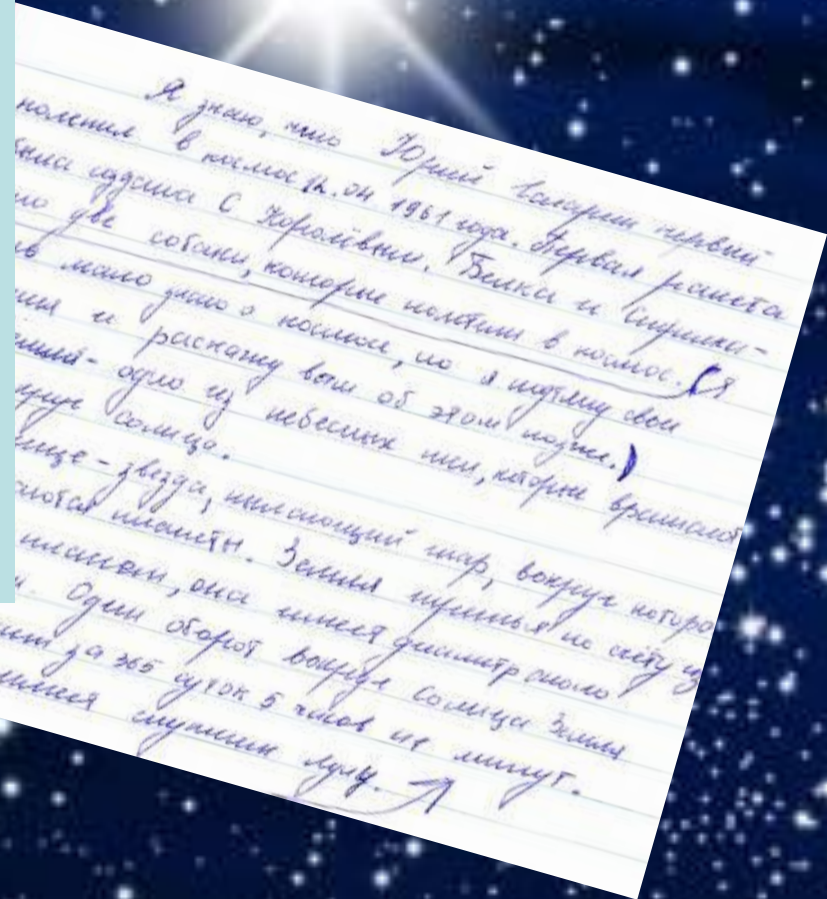 Я знаю, что Юрий Гагарин первый
полетил в космос 12. он 1961 года. Первая ракета
была создана С Королёвым. Белка и Стрелка-
две собаки, которые полетили в космос. (Я
мало знаю о космосе, но я изучу свои
и раскажу вам об этом позже.)
- одно из небесных тел, которые вращаются
вокруг солнца.
- звезда, пылающий шар, вокруг которо
планеты. Земля третья по счёту из
планет, она имеет диаметр около
Один оборот вокруг Солнца Земля
за 365 суток 5 часов 48 минут.
спутник луну.